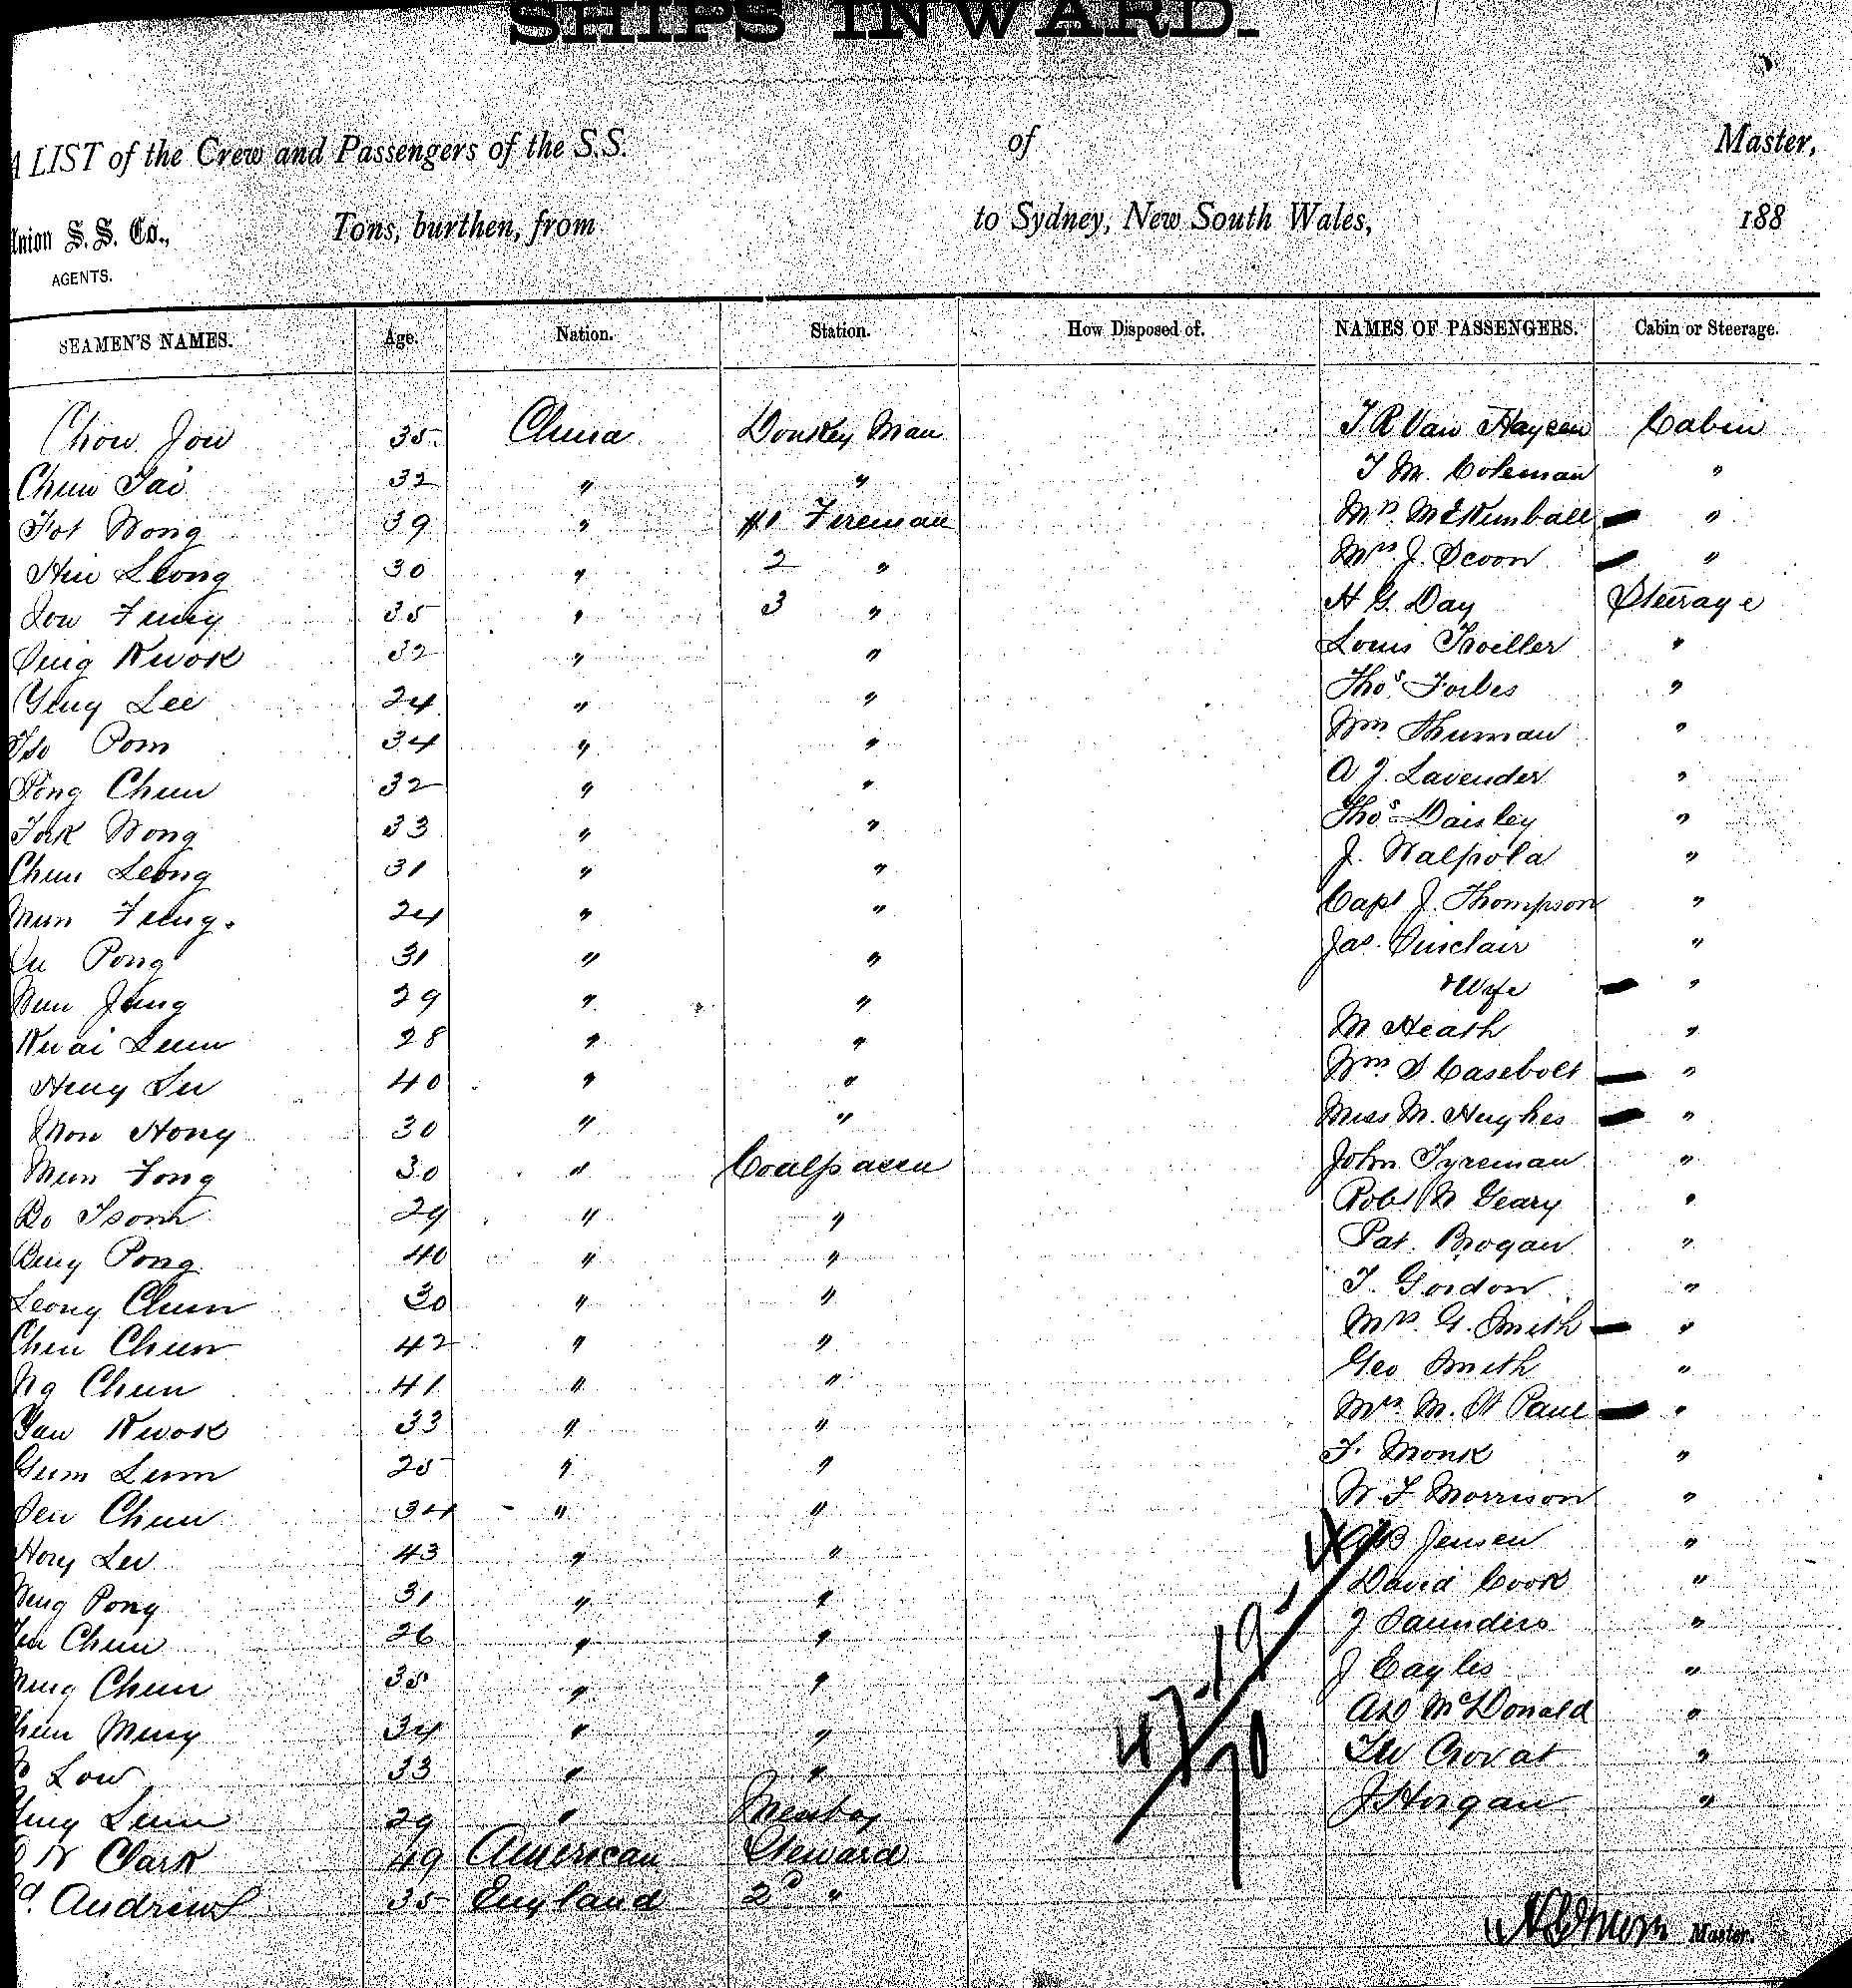 SHIPS INWARD.
A LIST of the Crew and Passengers of the S.S. of Master,
Union S. S. Co., Tons, burthen, from to Sydney, New South Wales, 188
AGENTS.
SEAMEN'S NAMES. Age. Nation. Station. How Disposed of. NAMES OF PASSENGERS. Cabin or Steerage.
Chow Jow 35 China Donkey Man T R Van Haysen Cabin
Chun Tai 32 " " T M. Coleman "
Fot Wong 39 " #1 Fireman Mrs. M E Kimball "
Hin Leong 30 " 2 " Mrs. J. Scoon "
Jow Fung 35 " 3 " H G. Day Steerage
Sing Kwok 32 " " Louis Troiller "
Ying Lee 24 " " Thos. Forbes "
Pom 34 " " Wm. Thurman "
Pong Chun 32 " " A J. Lavender "
Fook Wong 33 " " Thos Daisley "
Chun Leong 31 " " J. Walpola "
Mun Fung. 24 " " Capt J. Thompson "
Pong 31 " " Jas. Sinclair "
Jung 29 " " & Wife "
Kwai Leun 28 " " M Heath "
Hung Lee 40 " " Wm. S Casebolt "
Mow Hong 30 " " Miss M. Hughes "
Mun Fong 30 " Coalpasser John Tyreman "
Bo Tsom 29 " " Robt W Geary "
Bing Pong 40 " " Pat. Brogan "
Leong Chun 30 " " T. Gordon "
Chin Chun 42 " " Mrs. G. Smith "
Ng Chun 41 " " Geo Smith "
Yan Kwok 33 " " Mrs M. St Paul "
Gum Lum 25 " " F. Monk "
Sen Chun 34 " " W. F Morrison "
Hong Lee 43 " " Jensen "
Pong 31 " " David Cook "
Chun 26 " " J Saunders "
Chun 35 " " J Eagles "
Chun Ming 34 " " McDonald "
Low 33 " " Crovat "
Lum 29 " Messboy J Horgan "
W Clark 49 American Steward
Andrews 35 England 2d "
Master.